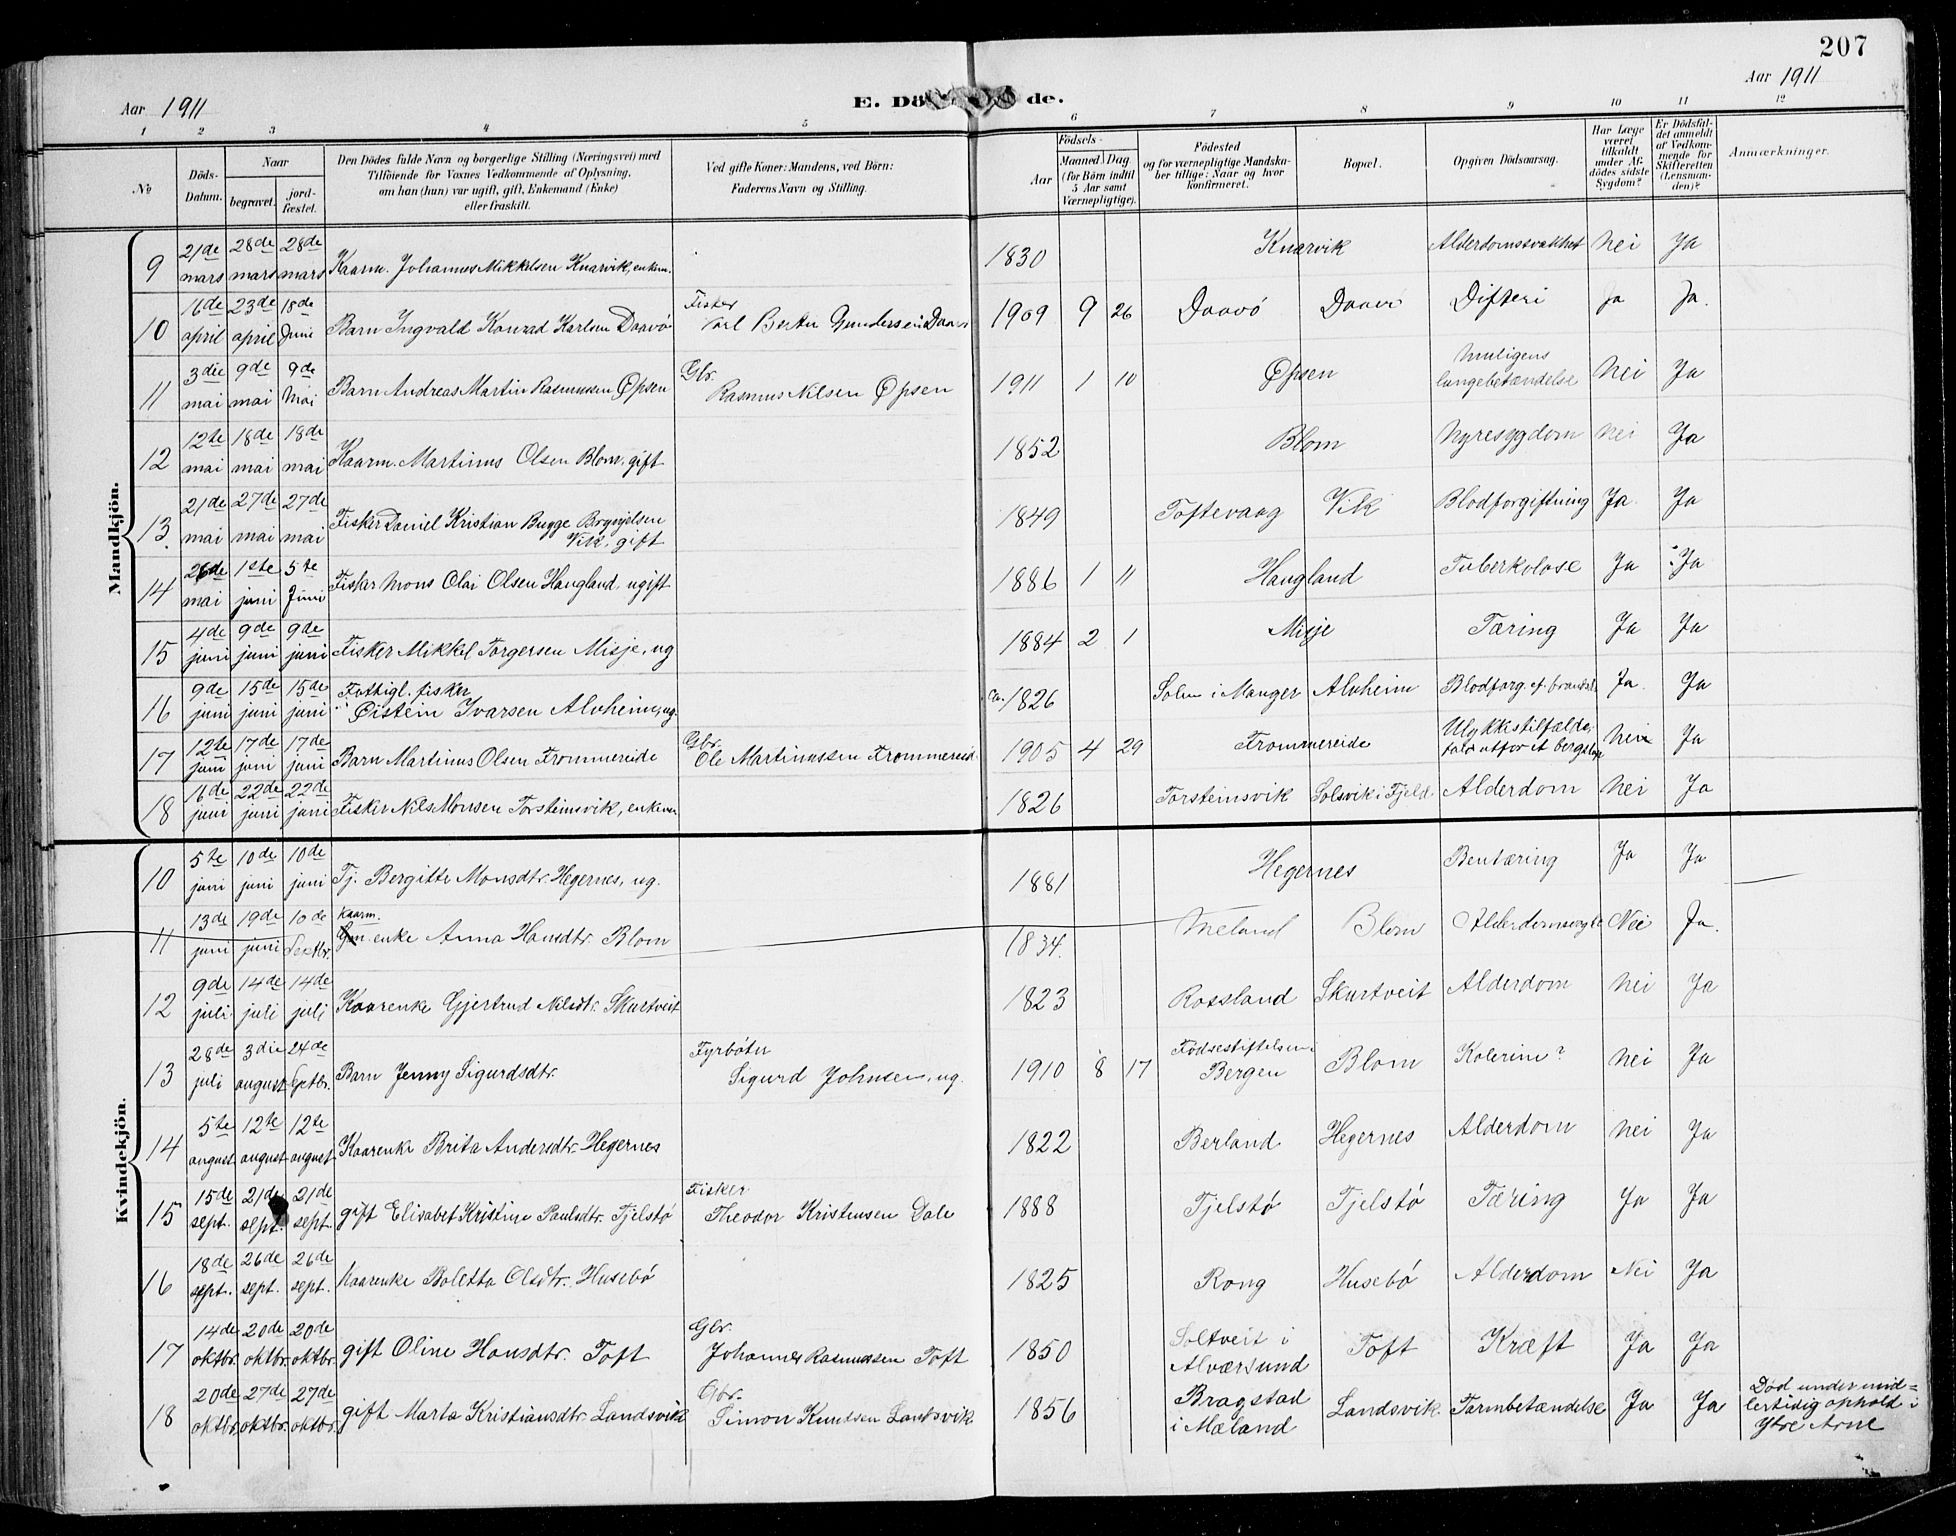 207
Aar 1911
E. Dö de.
Aar 1911
1 2 3 4 5 6 7 8 9 10 11 12
No
Döds-Datum.
Naar
begravet.
jord-fæstet.
Den Dödes fulde Navn og borgerlige Stilling (Næringsvei) med
Tilföiende for Voxnes Vedkommende af Oplysning,
om han (hun) var ugift, gift, Enkemand (Enke)
eller fraskilt.
Ved gifte Koner: Mandens, ved Börn:
Faderens Navn og Stilling.
Födsels-
Aar
Maaned Dag
(for Börn indtil
5 Aar samt
Værnepligtige).
Födested
og for værnepligtige Mandska-
ber tillige: Naar og hvor
konfirmeret.
Bopæl.
Opgiven Dödsaarsag.
Har Læge
været
tilkaldt
under Af-
dödes sidste
Sygdom?
Er Dödsfal-
det anmeldt
af Vedkom-
mende for
Skifteretten
(Lensman-
den)?
Anmærkninger.
Mandkjön.
9 21de mars 28de mars 28de mars Kaarm. Johannes Mikkelsen Knarvik, enkem. 1830 Knarvik Alderdomssvakhet Nei Ja
10 6de april 23de april 18de Juni Barn Ingvald Konrad Karlsen Daavö Fisker Karl Berter Gundersen Daavö 1909 9 26 Daavö Daavö Difteri Ja Ja.
11 3die mai 9de mai 9de Mai Barn Andreas Martin Rasmussen Øpsen Gbr. Rasmus Nilsen Øpsen 1911 1 10 Øpsen muligens lungebetændelse Nei Ja
12 12te mai 18de mai 18de mai Kaarm. Martinus Olsen Blom, gift 1852 Blom Nyresygdom Nei Ja
13 21de mai 27de mai 27de mai Fisker Daniel Kristian Bugge Brynjelsen Vik, gift 1849 Toftevaag Vik Blodforgiftning Ja. Ja
14 26de mai 1ste juni 5te Juni Fisker Mons Olai Olsen Haugland, ugift 1886 1 11 Haugland Tuberkulose Ja Ja
15 4de juni 9de juni 9de juni Fisker Mikkel Torgersen Misje, ug 1884 2 1 Misje Tæring Ja Ja
16 9de juni 15de juni 15de juni Fattigl. fisker Øistein Ivarsen Alvheim, ug. ca. 1826 Solem i Manger Alvheim Blodforg. ef. Ja. Ja
17 12te juni 17de juni 17de juni Barn Martinus Olsen Trommereide Gbr. Ole Martinussen Trommereide 1905 4 29 Trommereide Ulykkestilfælde, utfor et Nei Ja
18 16de juni 22de juni 22de juni Fisker Nils Monsen Torsteinsvik, enkem 1826 Torsteinsvik Solsvik i Fjeld. Alderdom Nei Ja
Kvindekjön.
10 5te juni 10de juni 10de juni Tj. Bergitte Monsdtr. Hegernes, ug. 1881 Hegernes Bentæring Ja Ja
11 13de juni 19de juni 10de Septbr. Kaarm. enke Anna Hansdtr. Blom 1834. Meland Blom Nei Ja.
12 9de juli 14de juli 14de juli Kaarenke Gjertrud Nilsdtr. Skurtveit 1823 Rossland Skurtveit Alderdom Nei Ja
13 28de juli 3die august 24de Septbr. Barn Jenny Sigurdsdtr. Fyrböter Sigurd Johnsen, ug. 1910 8 17 Födsestiftelsen i Bergen Blom Kolerine? Nei Ja
14 5te august 12te august 12te august Kaarenke Brita Andersdtr. Hegernes 1822 Berland Hegernes Alderdom Nei Ja
15 15de sept. 21de sept. 21de sept. gift Elisabet Kristine Paulsdtr. Tjelstö Fisker Theodor Kristensen Dale 1888 Tjelstö Tjelstö Tæring Ja Ja
16 18de sept. 26de sept. 26de sept. Kaarenke Boletta Olsdtr. Husebö 1825 Rong Husebö Alderdom Nei Ja
17 14de oktbr. 20de oktbr. 20de oktbr. gift Oline Hansdtr. Toft Gbr. Johannes Rasmussen Toft 1850 Soltveit i Alværsund Toft Kræft Ja Ja
18 20de oktbr. 27de oktbr. 27de oktbr. gift Marta Kristiansdtr. Landsvik Gbr. Simon Knutsen Landsvik 1856 Bragstad i Mæland Landsvik Tarmbetændelse Ja Ja Död under mid=lertidig ophold i Ytre Arne